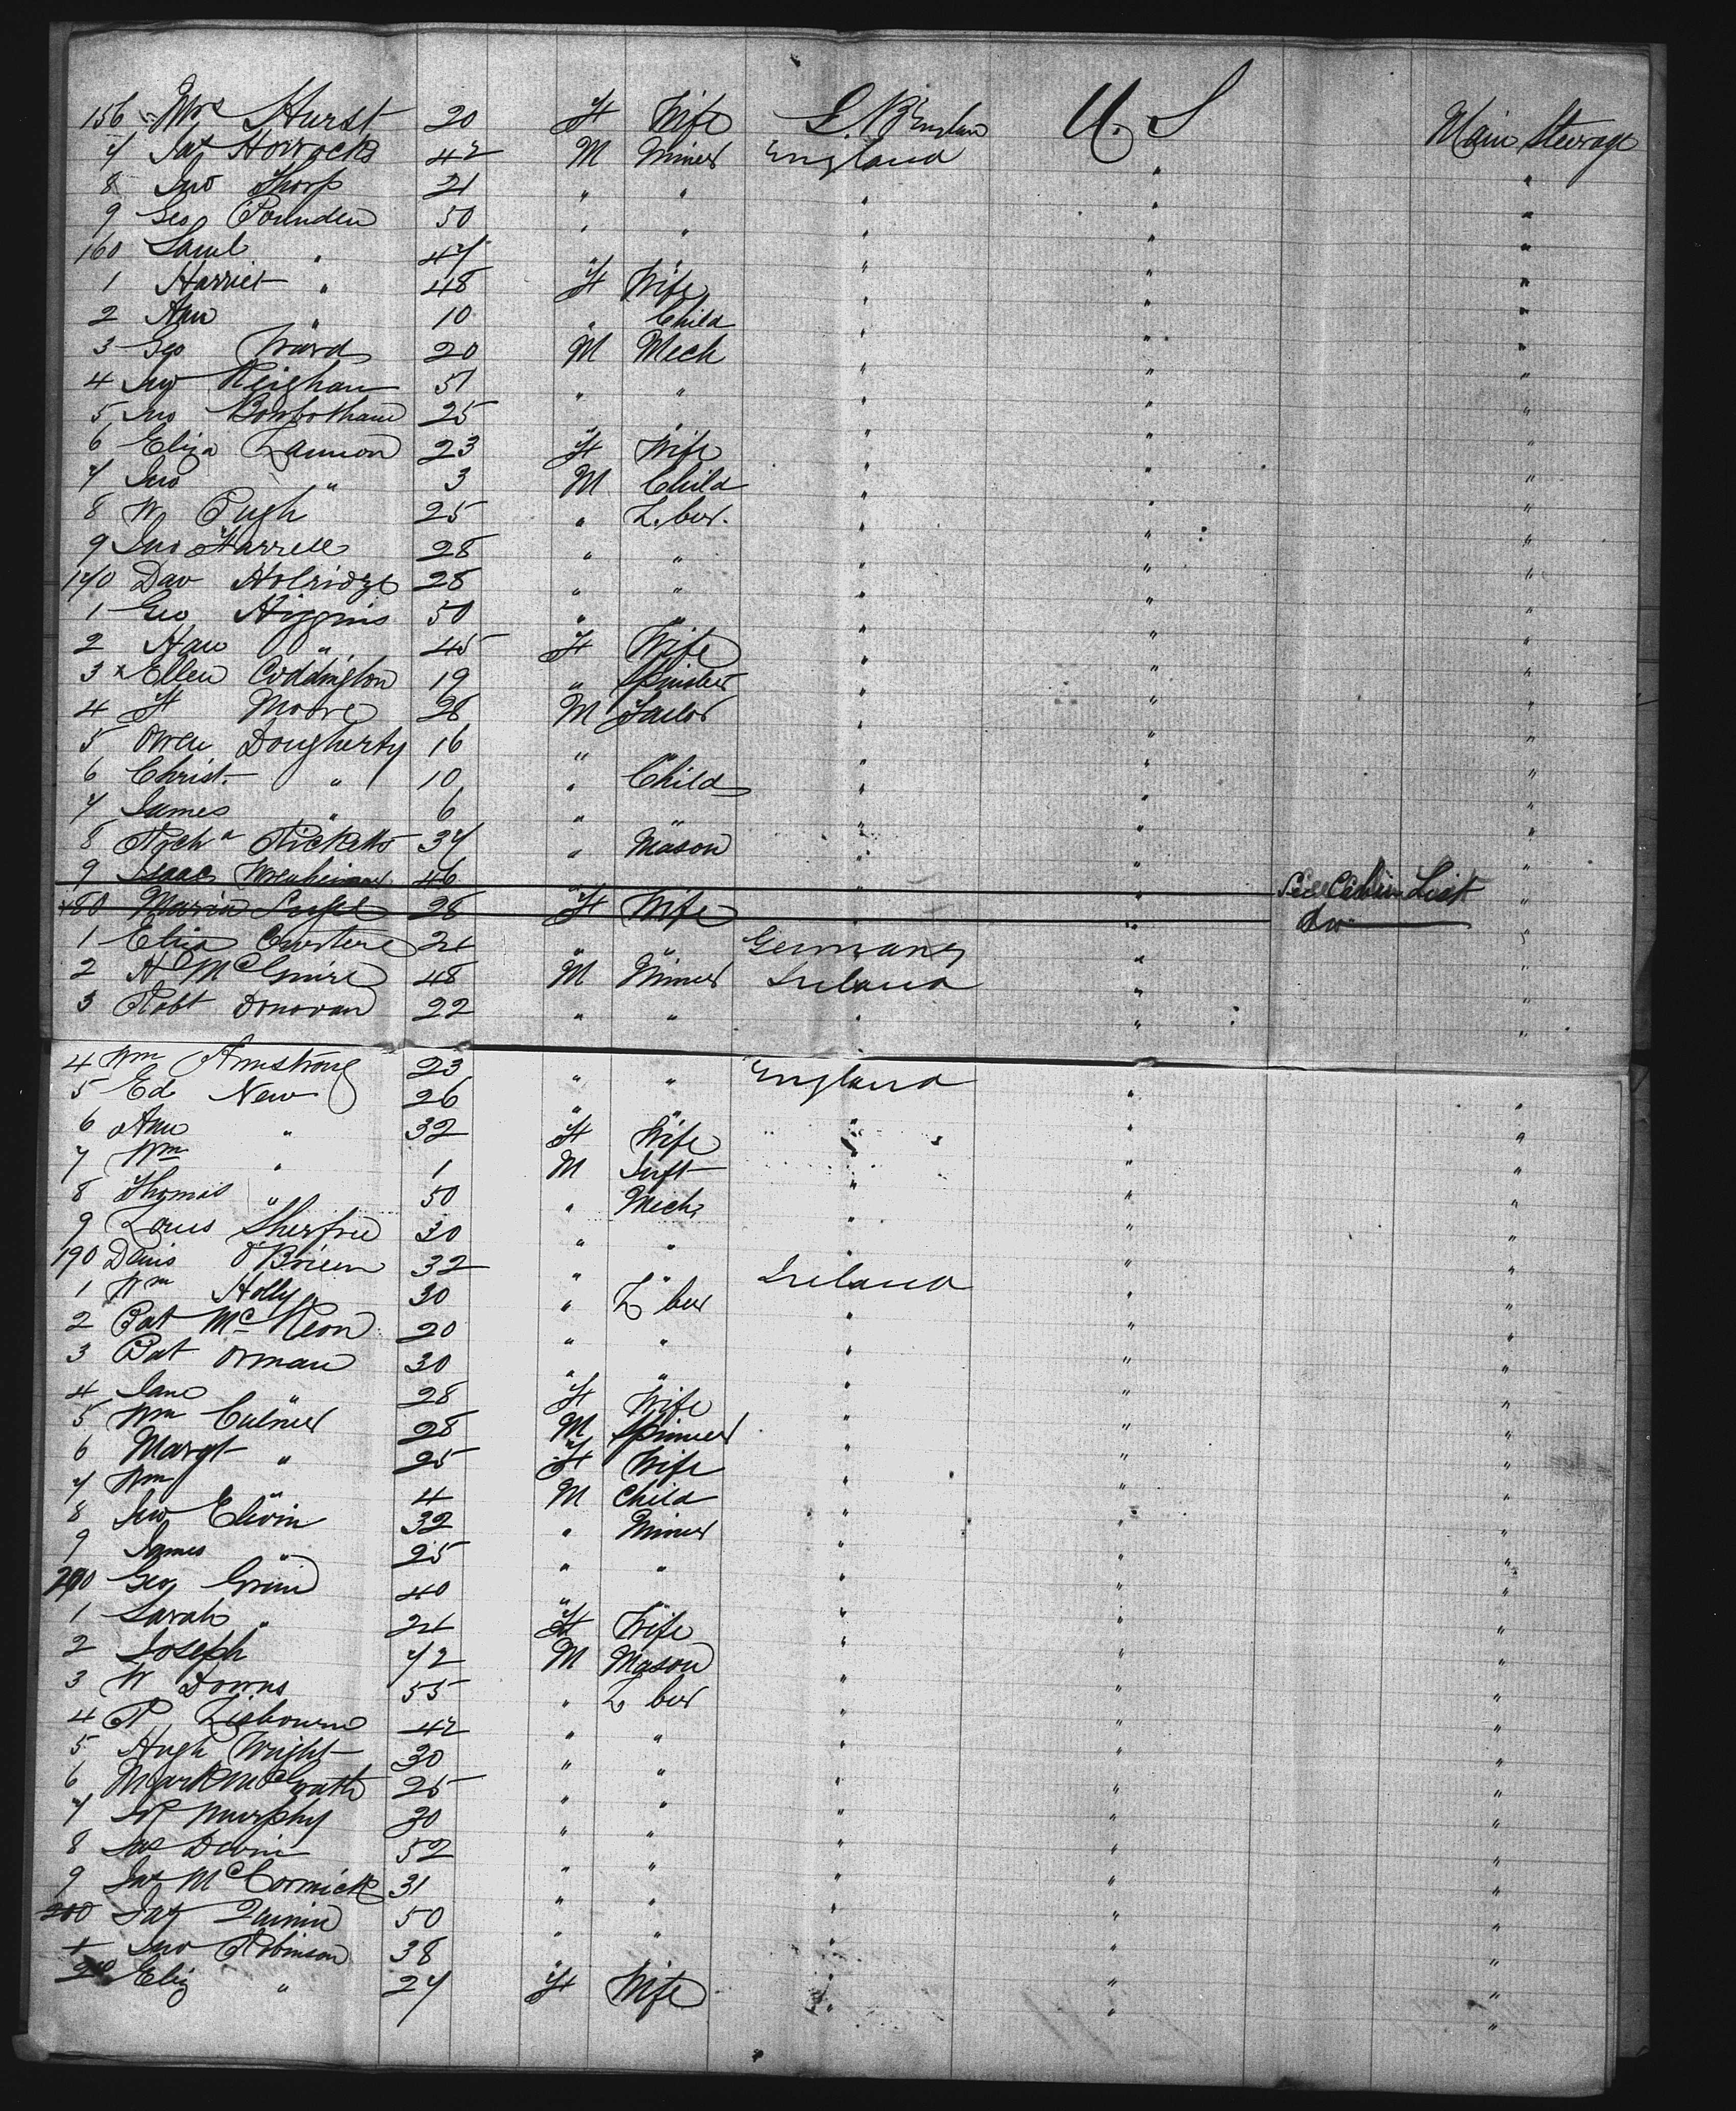 156 Mrs Hurst 20 F Wife U.S Main Steerage
7 Jas Horrocks 42 M Miner England " "
8 Jno Thorp 21 " " " " "
9 Geo Pounden 50 " " " " "
160 Saml " 47 " " " " "
1 Harriet " 48 F Wife " " "
2 Ann " 10 " Child " " "
3 Geo Ward 20 M Mech " " "
4 Jno Keighan 51 " " " " "
5 Jno Bowbotham 25 " " " " "
6 Eliza Lannon 23 F Wife " " "
7 Jno " 3 M Child " " "
8 W Pugh 25 " L.ber. " " "
9 Jno Harrell 28 " " " " "
170 Dav Holridge 28 " " " " "
1 Geo Higgins 50 " " " " "
2 Han " 45 F Wife " " "
3 x Ellen Coddington 19 " Spinster " " "
4 H Moore 28 M Tailor " " "
5 Owen Dougherty 16 " " " " "
6 Christ. " 10 " Child " " "
7 James " 6 " " " " "
8 Rich Ricketts 37 " Mason " " "
9 Isaac 46 " " " " See Cabin List "
180 Maria 28 F Wife " " Do "
1 Eliza 21 " " Germany " "
2 H McGuire 48 M Miner Ireland " "
3 Robt Donovan 22 " " " " "
4 Wm Armstrong 23 " " England " "
5 Ed New 26 " " " " "
6 Ann " 32 F Wife " " "
7 Wm " 1 M Inft " " "
8 Thomas " 50 " Mech " " "
9 Louis 30 " " " " "
190 Denis O'Brien 32 " " Ireland " "
1 Wm Holly 30 " L ber " " "
2 Pat McKeon 20 " " " " "
3 Pat Orman 30 " " " " "
4 Jane " 28 F Wife " " "
5 Wm Culner 28 M Spinner " " "
6 Margt " 25 F Wife " " "
7 Wm " 4 M Child " " "
8 Jno Elivin 32 " Miner " " "
9 James " 25 " " " " "
200 Geo 40 " " " " "
1 Sarah " 24 F Wife " " "
2 Joseph 72 M Mason " " "
3 W Downs 55 " L ber " " "
4 R Lisbourne 42 " " " " "
5 Hugh Wright 30 " " " " "
6 Mark McGrath 25 " " " " "
7 Murphy 30 " " " " "
8 Jas Devin 52 " " " " "
9 Jas McCormick 31 " " " " "
200 Jas Quinn 50 " " " " "
1 Jno Robinson 38 " " " " "
Eliz " 27 F Wife " " "